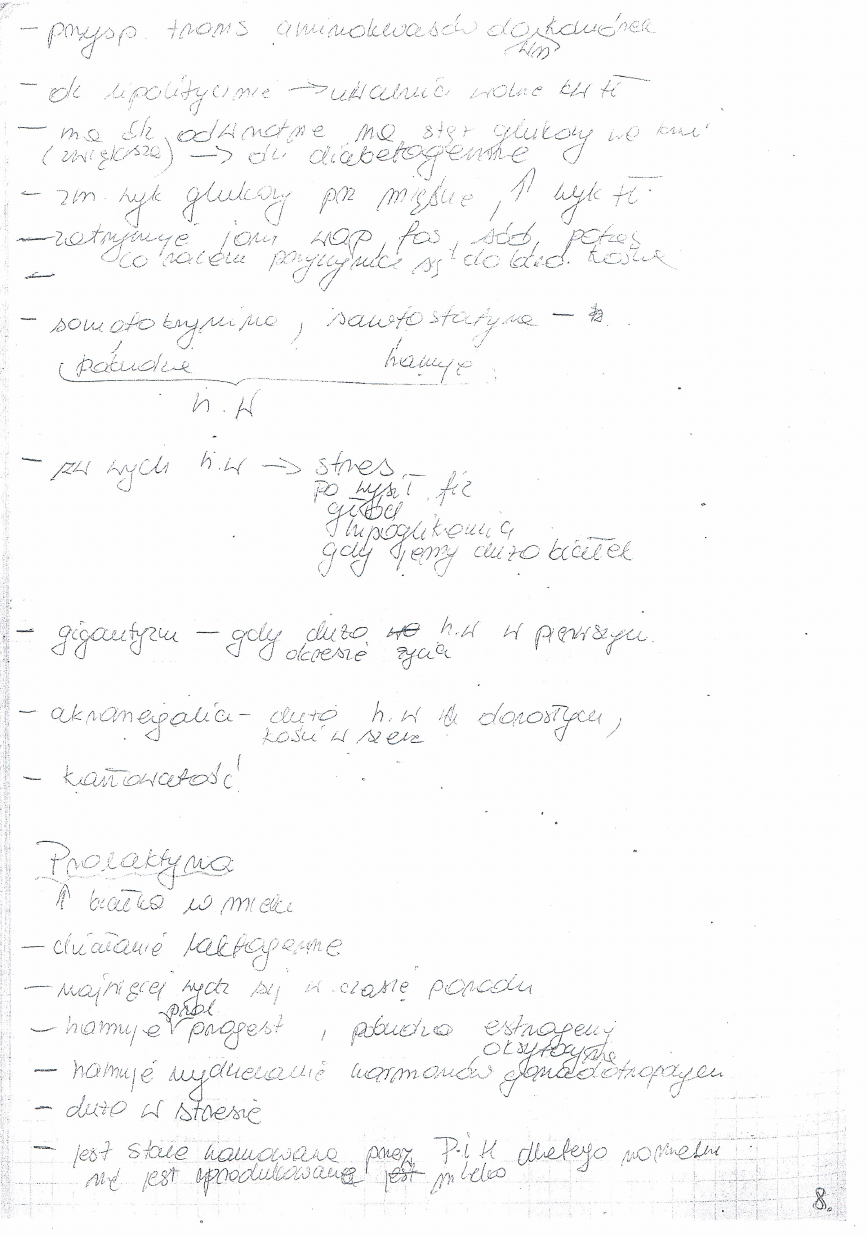 – przysp. trans aminokwasów do komórek
– dz lipolitycznie → uwalnia wolne kw tł
– ma dz odwrotne na stęż glukozy we krwi
(zwiększa) → dz diabetogenne
– zm. wyk glukozy prz mięśnie, ↑ wyk tł
– zatrzymuje jony wap, fos, sód, potas
co razem
– somatokrynina, somtostatyna –
pobudza hamuje
h.W
– zw wydz h.W → stres
po wysił. fiz
głód
hipoglikemia
gdy jemy dużo białek
– gigantyzm – gdy dużo h.w w pierwszym
okresie życia
– akromegalia – dużo h.w u dorosłych,
kości w szerz
– karłowatość
Prolaktyna
↑ białka w mleku
– działanie laktogenne
– najwięcej wydz się w czasie porodu
prol
– hamuje progest, pobudza estrogeny
oksytocynę
– hamuje wydzielanie hormonów gonadotropowych
– dużo w stresie
– jest stale hamowana przez P.i H dlatego normalnie
nie jest produkowane mleko
8.